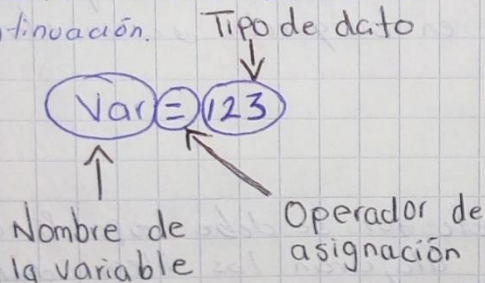 tinuación.
Tipo de dato
Var = 123
Nombre de
la variable
Operador de
asignación